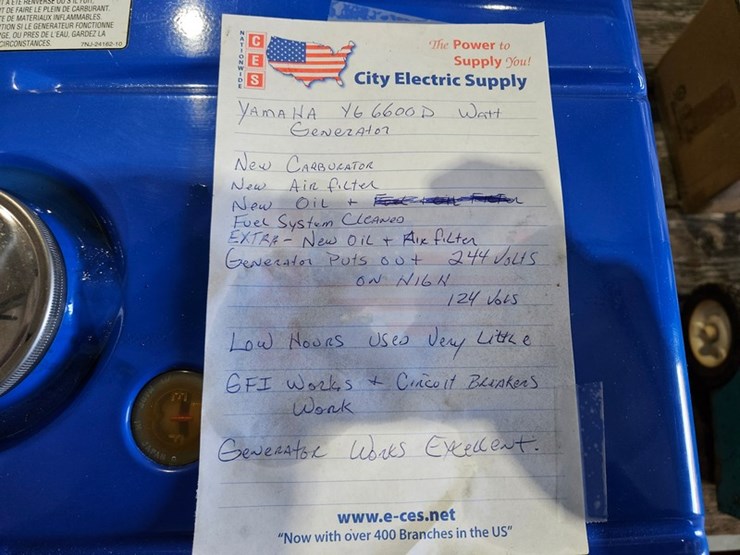 T DE FAIRE LE PLEIN DE CARBURANT.
DE MATERIAUX INFLAMMABLES.
TION SI LE GENERATEUR FONCTIONNE
GE, OU PRES DE L'EAU, GARDEZ LA
CIRCONSTANCES.
7NJ-24162-10
NATIONWIDE
CES
The Power to
Supply You!
City Electric Supply
YAMAHA YG 6600D Watt
Generator
New Carburator
New Air filter
New Oil +
Fuel System Cleaned
EXTRA - New Oil + Air filter
Generator Puts out 244 Volts
ON HIGH
124 Vols
Low Hours Used Very Little
GFI Works + Circuit Breakers
Work
Generator Works Excellent.
www.e-ces.net
"Now with over 400 Branches in the US"
E
F
JAPAN